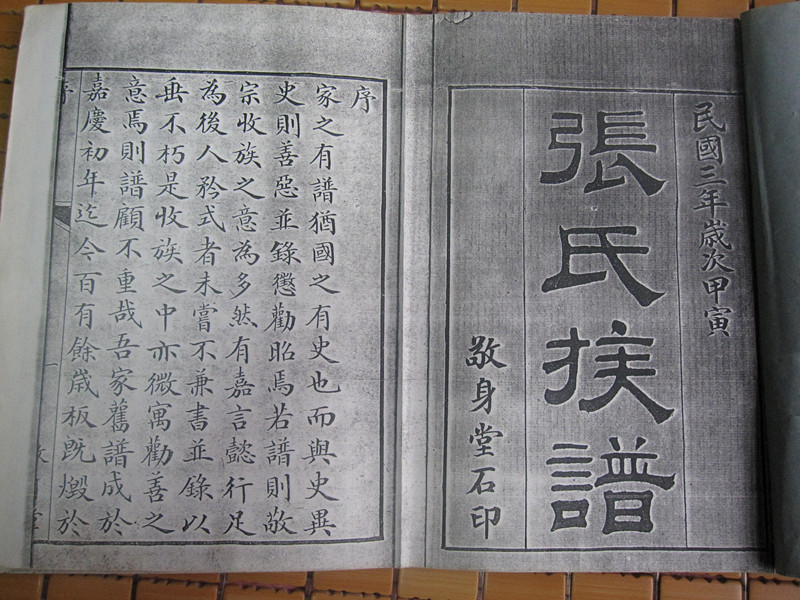 民國三年歲次甲寅
張氏族譜
敬身堂石印
序
家之有譜猶國之有史也而與史異
史則善惡並錄懲勸昭焉若譜則敬
宗收族之意為多然有嘉言懿行足
為後人矜式者未嘗不兼書並錄以
垂不朽是收族之中亦微寓勸善之
意焉則譜顧不重哉吾家舊譜成於
嘉慶初年迄今百有餘歲板既燬於
序
一